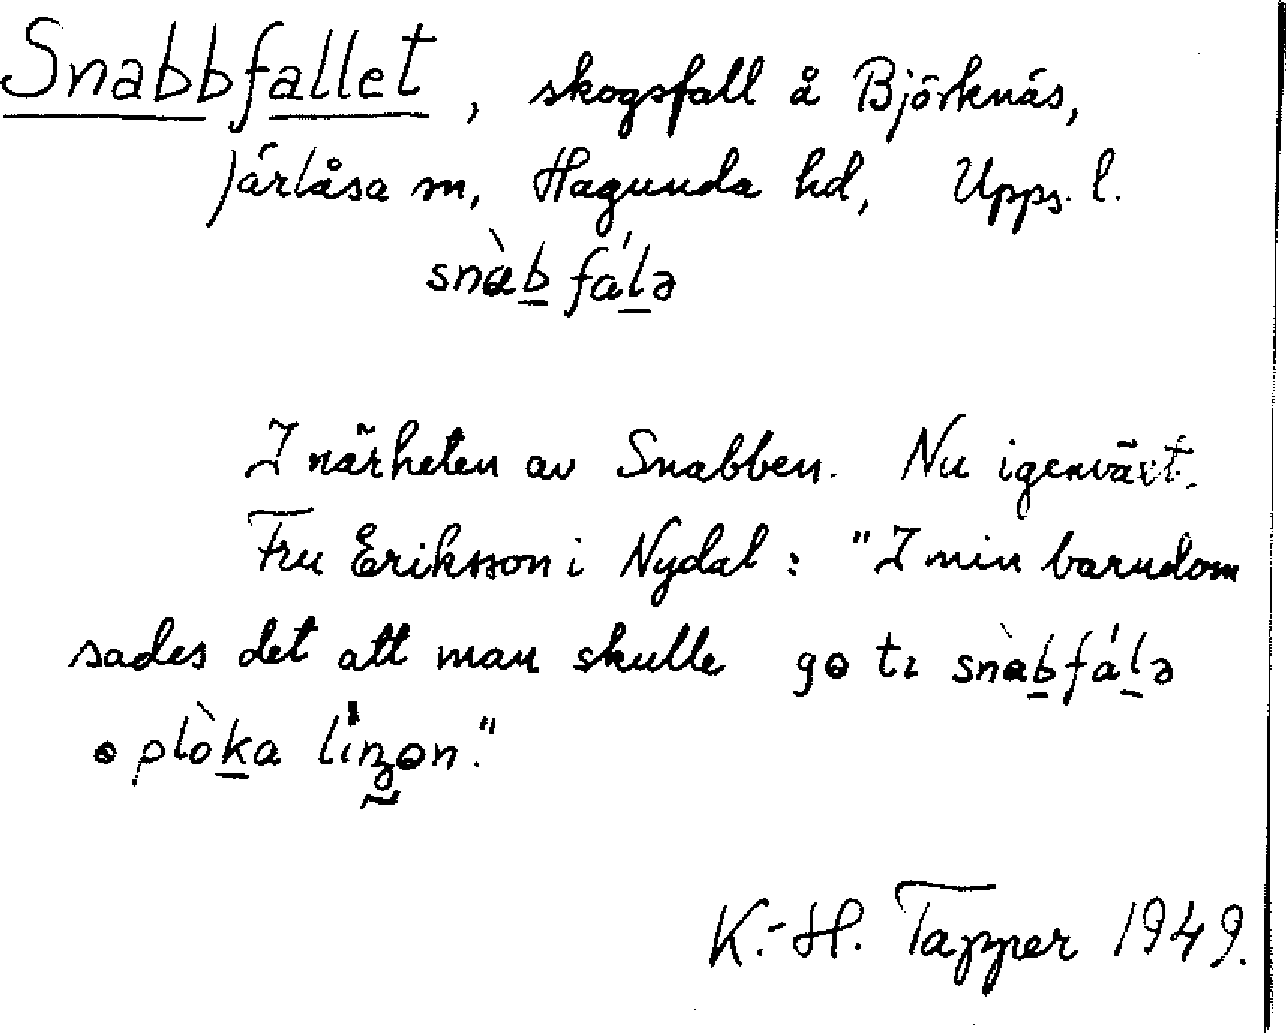 Snabbfallet, skogsfall å Björknäs,
Järlåsa sn, Hagunda hd, Upps. l.
snàb̲ fál̲ə
I närheten av Snabben. Nu igenväxt.
Fru Eriksson i Nydal: "I min barndom
sades det att man skulle go tɩ snàb̲fál̲ə
ɵ plòk̲a lɩŋɵn."
K.-H. Tapper 1949.